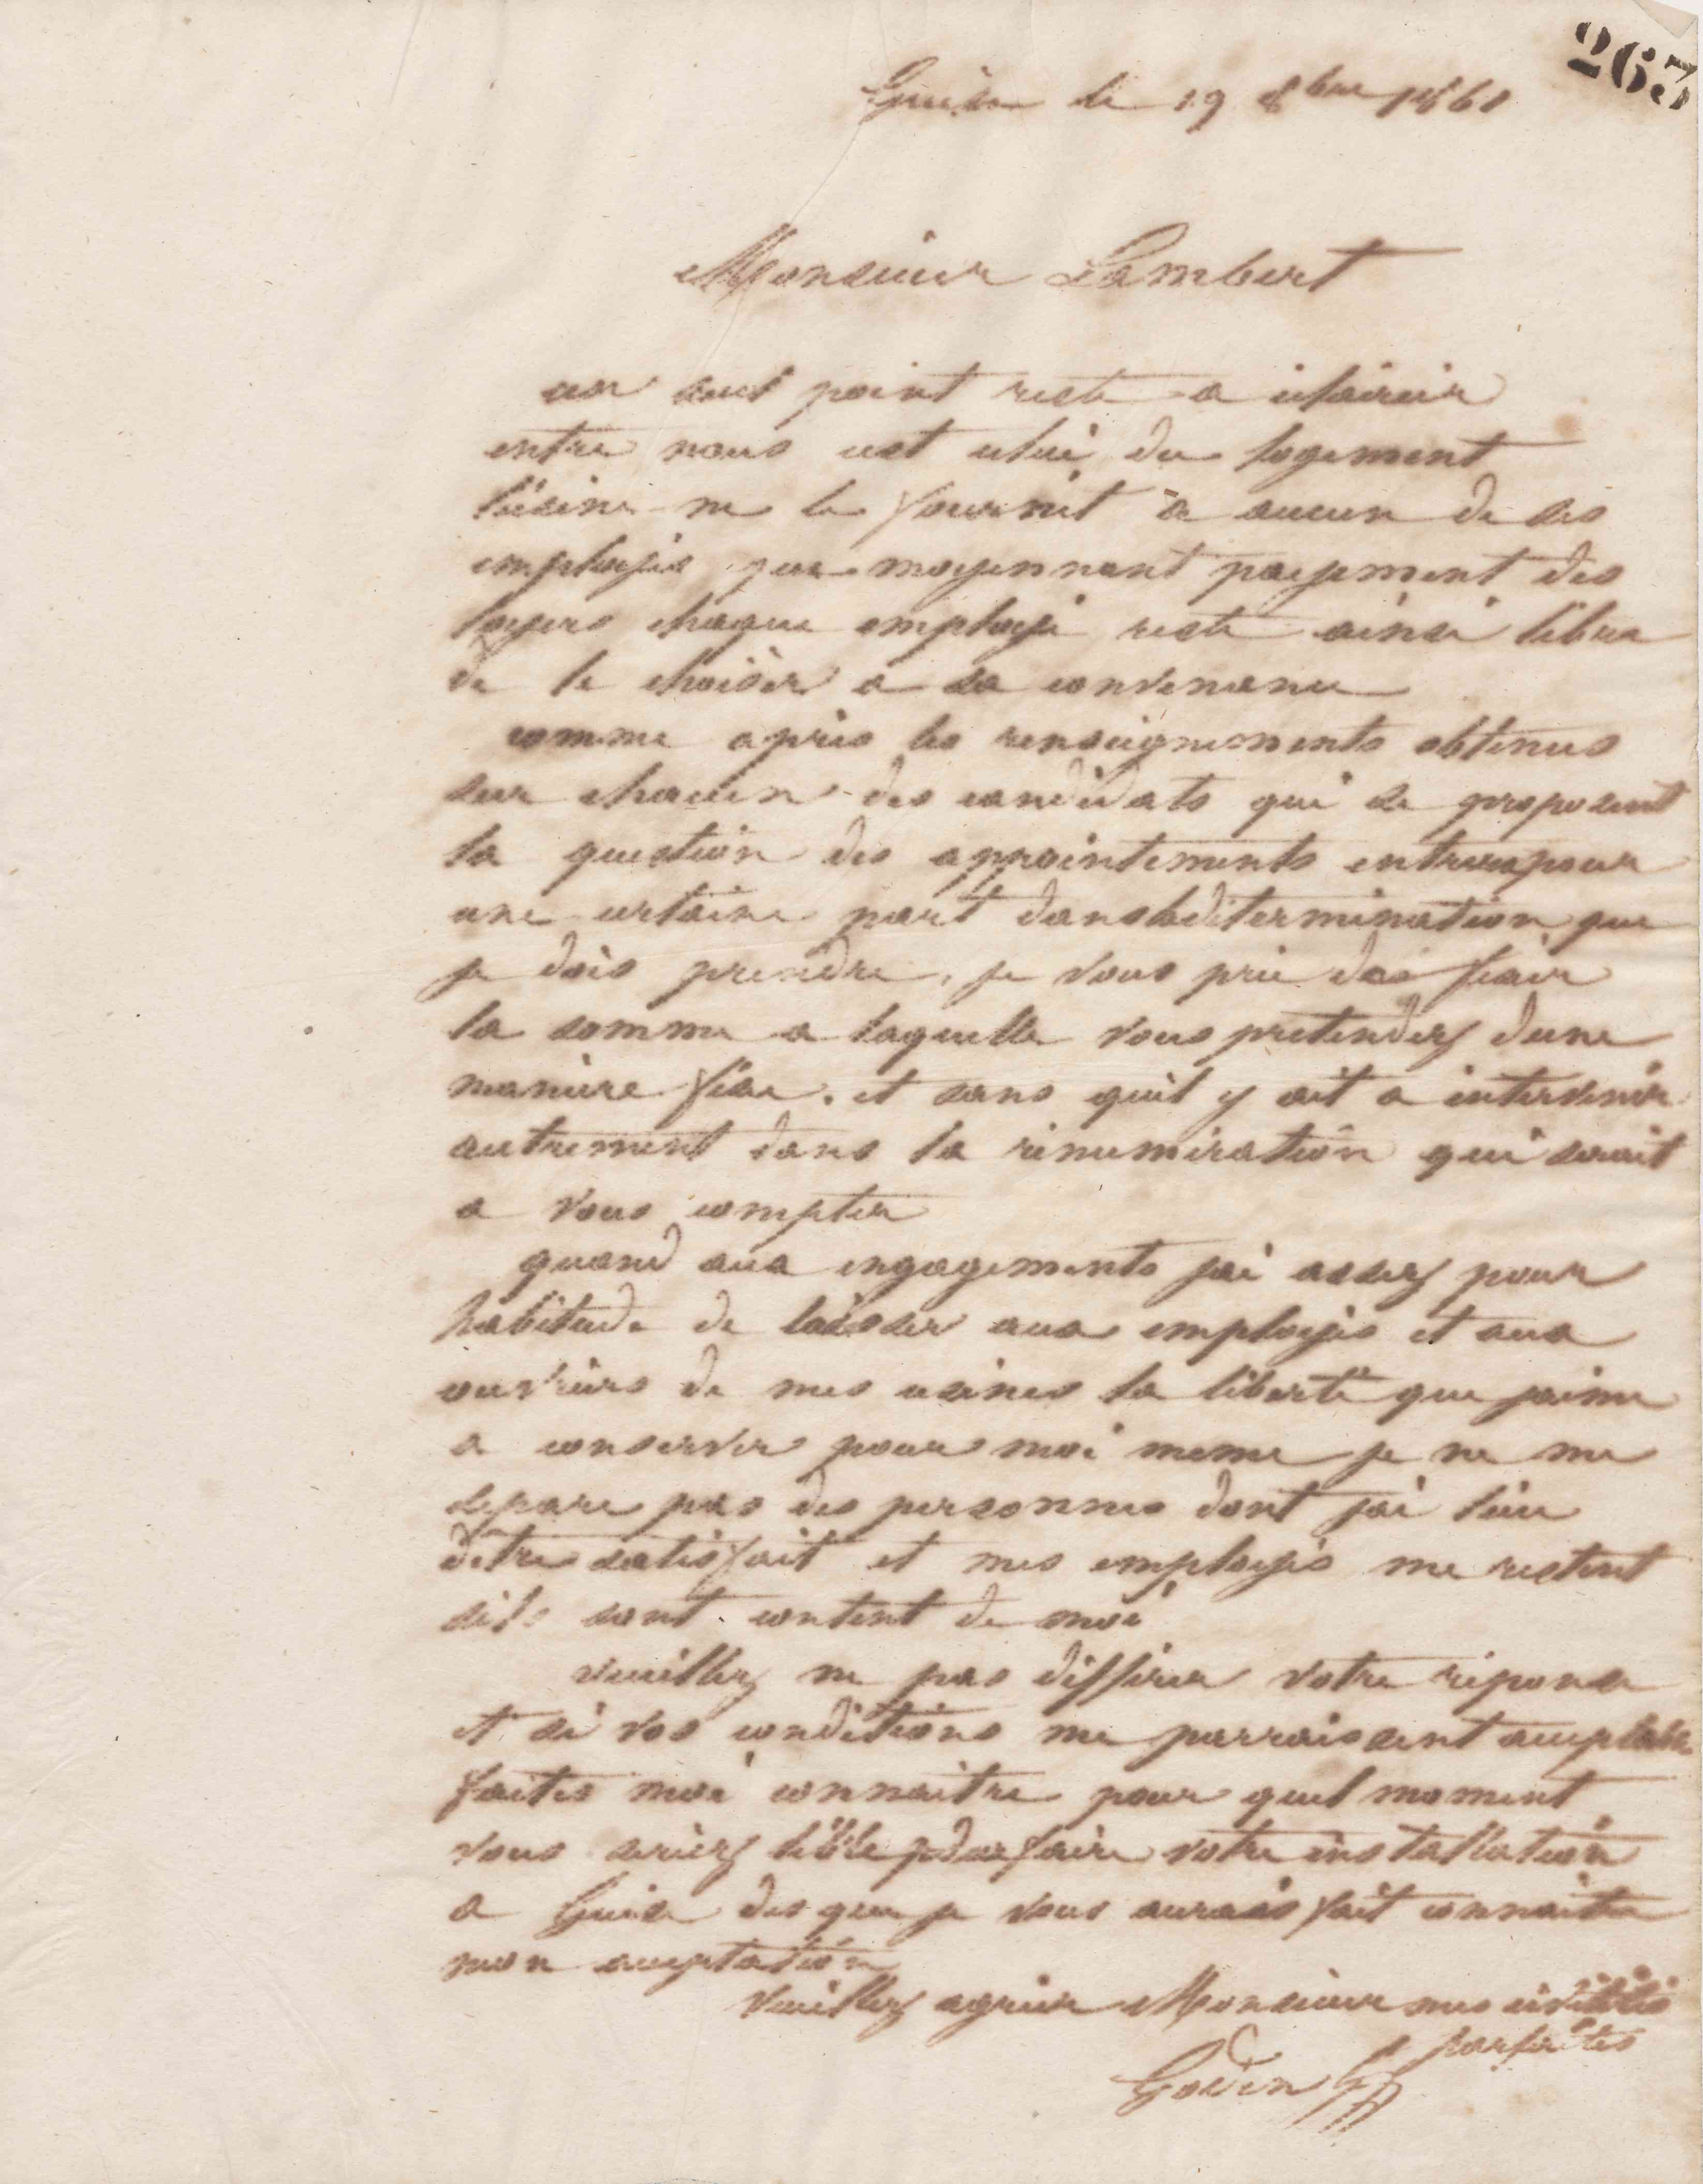 263
Guise le 19 8bre 1861
Monsieur Lambert
un seul point reste a eclaircir
entre nous cest celui du logement
lusine ne le fournit a aucun de ses
employés que moyennant payement des
loyers chaque employé reste ainsi libre
de le choisir a sa convenance
comme apres les renseignements obtenus
sur chacun des candidats qui se proposent
la question des appointements entrera pour
une certaine part dans la determination que
je dois prendre, je vous prie de fixer
la somme a laquelle vous pretendez dune
maniere fixe. et sans quil y ait a intervenir
autrement dans la rénumération qui serait
a vous compter
quand aux engagements jai assez pour
habitude de laisser aux employés et aux
ouvriers de mes usines la liberté que jaime
a conserver pour moi meme je ne me
separe pas des personnes dont jai lieu
detre satisfait et mes employés me restent
sils sont content de moi
veuillez ne pas différer votre réponse
et si vos conditions me parraissent acceptable
faites moi connaitre pour quel moment
vous seriez libre pour faire votre installation
a Guise des que je vous aurais fait connaitre
mon acceptation
Veuillez agréer Monsieur mes civilités
parfaites
Godin